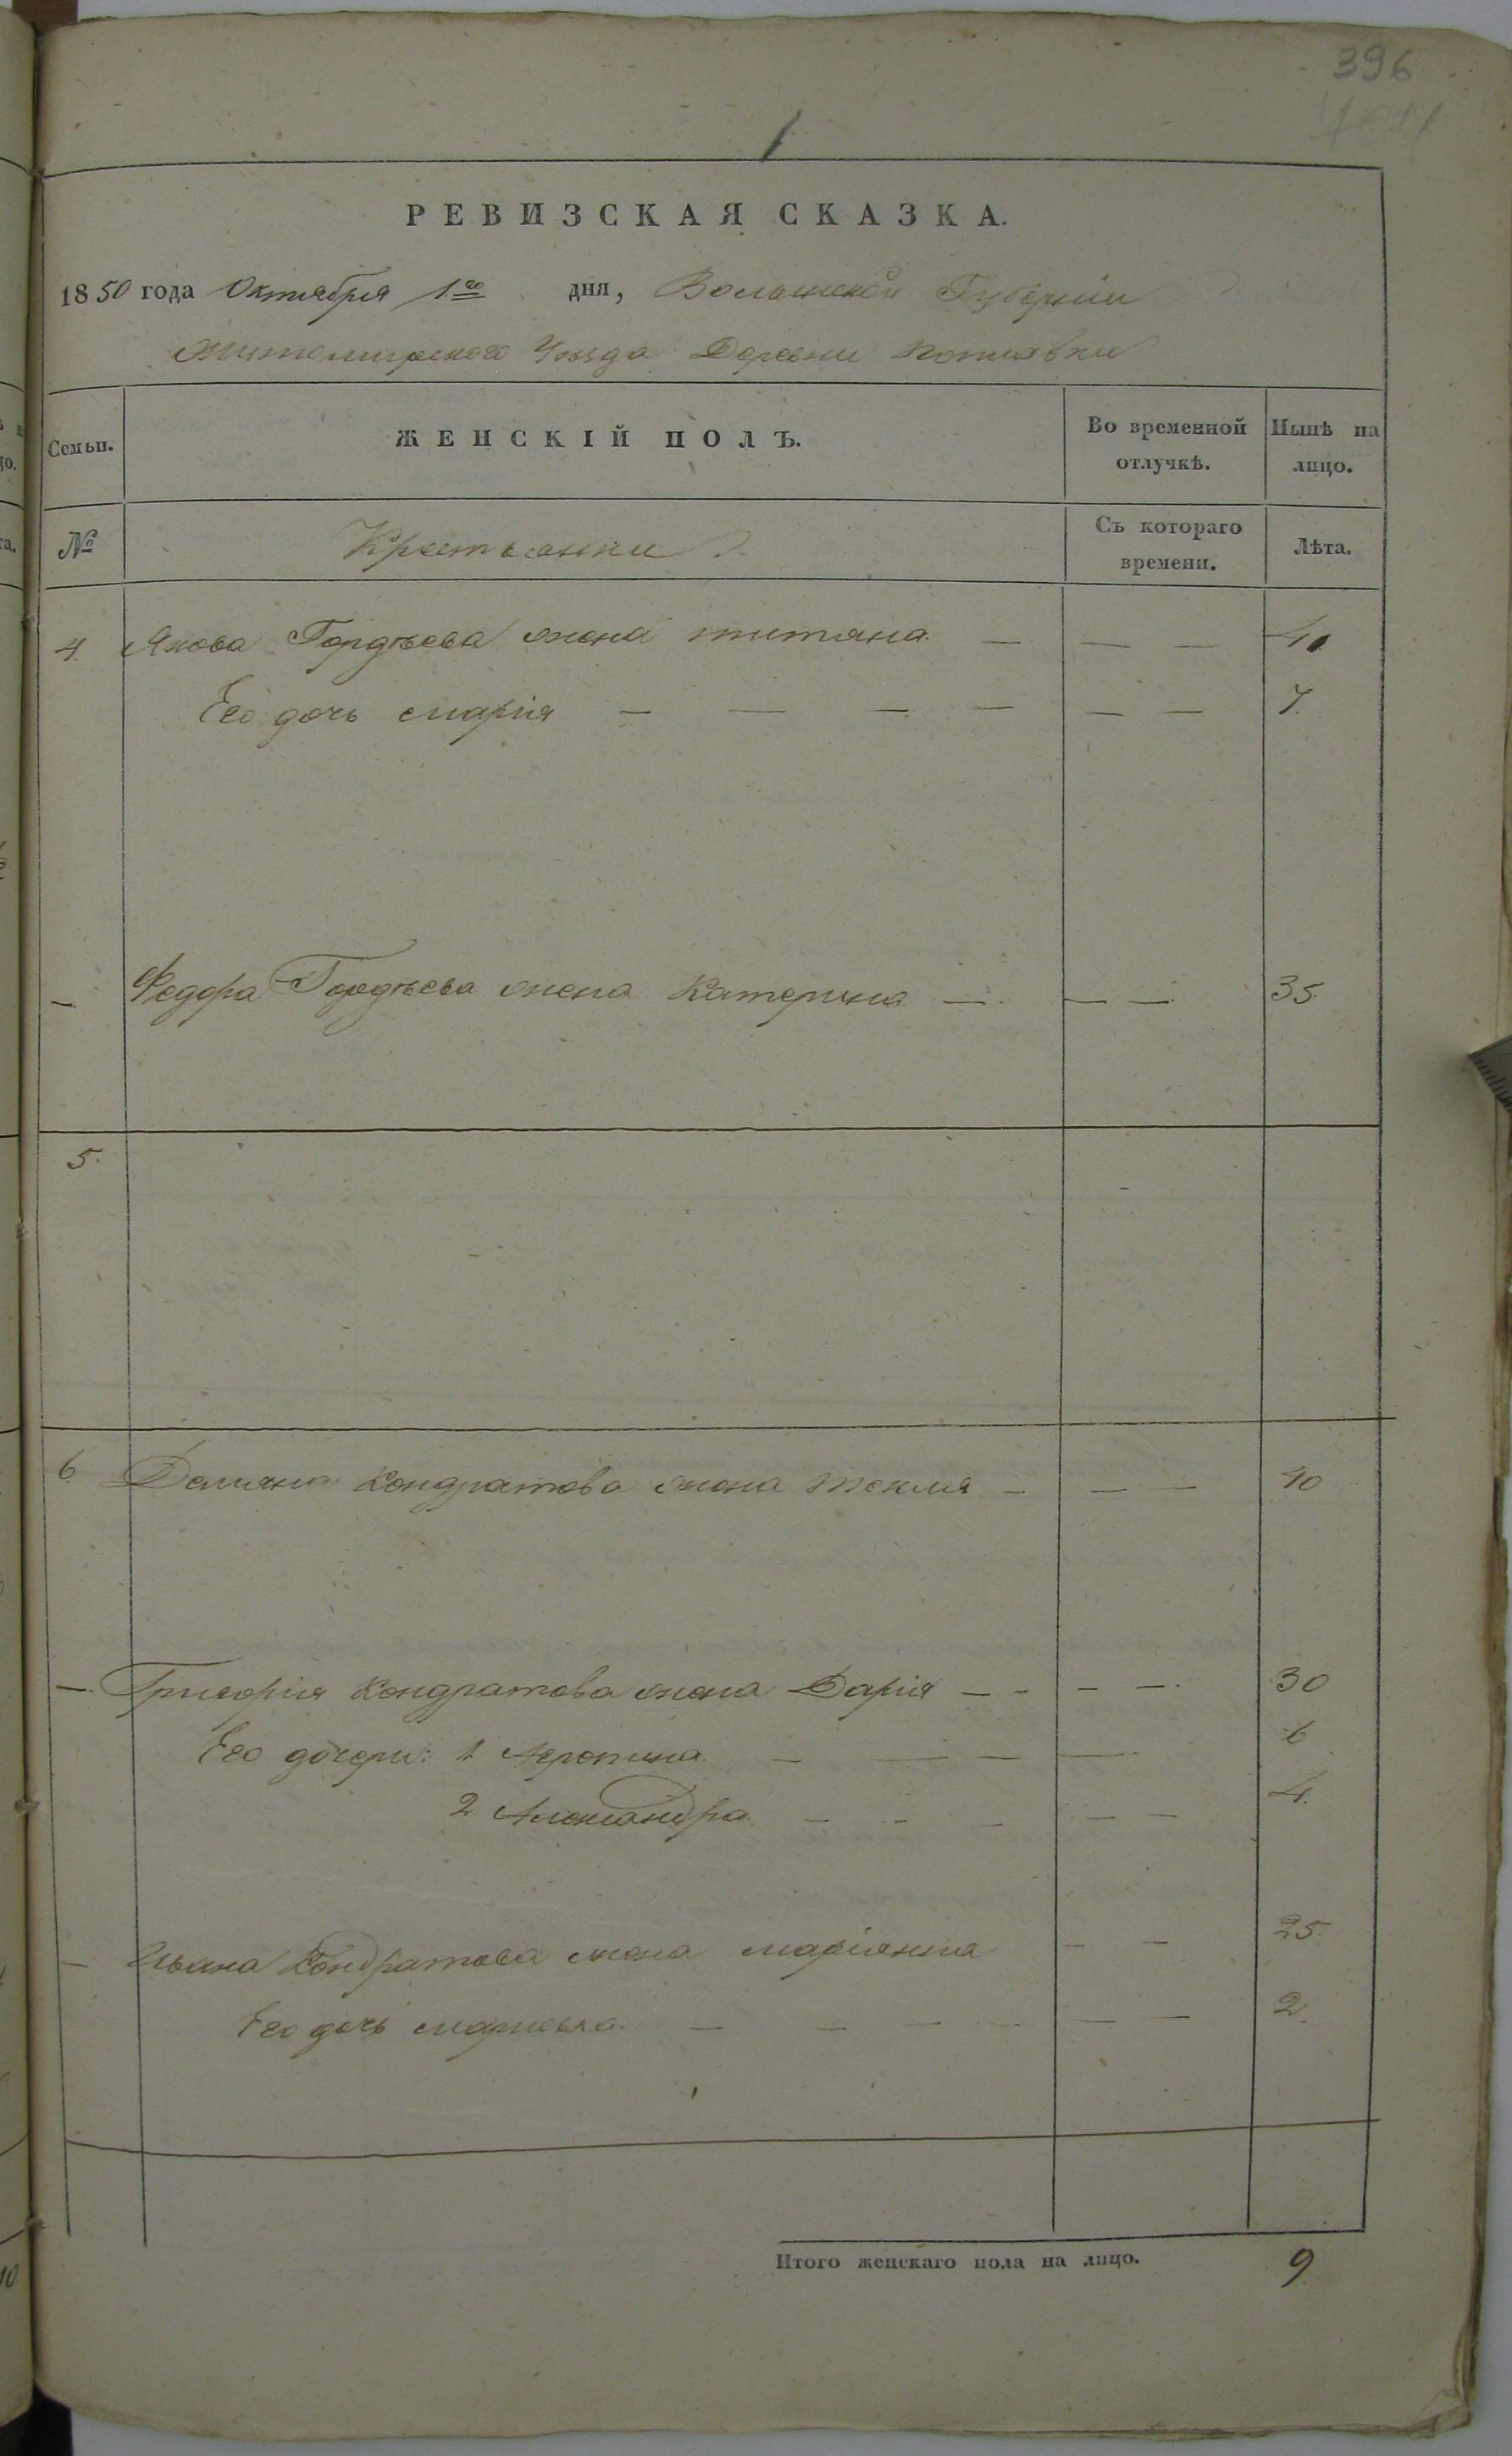 396
РЕВИЗСКАЯ СКАЗКА.
1850 года Октября 1го дня, Волынской Губерніи
Житомирского Уѣзда Деревни
Семьи. ЖЕНСКІЙ ПОЛЪ. Во временной отлучкѣ. Нынѣ на лицо.
№ Крестьянки Съ котораго времени. Лѣта.
4. Якова Гордѣева жена Татяна — — — 40
Его дочь Марія — — — — — — 7.
— Федора Гордѣева жена Катерина — — — 35.
5.
6 Демяна Кондратова жена Текля — — — 40
— Григорія Кондратова жена Дарія — — — — 30
Его дочери: 1 Агропина — — — — 6
2 Александра — — — — — 4.
— Ивана Кондратова жена Маріянна — — 25.
Его дочь — — — — — — 2.
Итого женскаго пола на лицо. 9